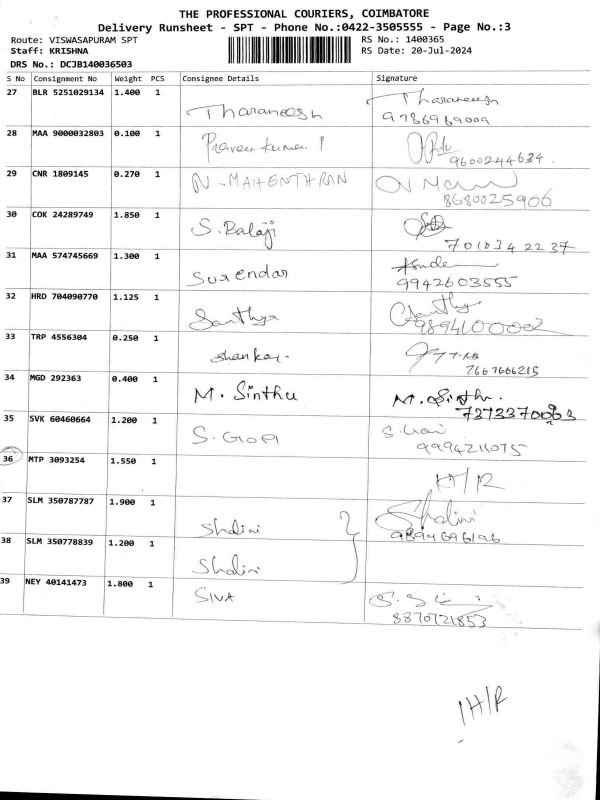 THE PROFESSIONAL COURIERS, COIMBATORE
Delivery Runsheet - SPT - Phone No.:0422-3505555 - Page No.:3
Route: VISWASAPURAM SPT RS No.: 1400365
Staff: KRISHNA RS Date: 20-Jul-2024
DRS No.: DCJB140036503
S No Consignment No Weight PCS Consignee Details Signature
27 BLR 5251029134 1.400 1 Tharaneesh Tharaneesh
9786969009
28 MAA 9000032803 0.100 1 Praveen kumar P
9600244634.
29 CNR 1809145 0.270 1 N-MAHENTHRAN
8680025906
30 COK 24289749 1.850 1 S.Balaji
7010342237
31 MAA 574745669 1.300 1 Surendar
9942603555
32 HRD 704090770 1.125 1 Santhya Santhya
9894100002
33 TRP 4556304 0.250 1 shankar-
7667666215
34 MGD 292363 0.400 1 M. Sinthu M. Sinthu.
35 SVK 60460664 1.200 1 S. GOPI
9994211075
36 MTP 3093254 1.550 1 H/R
37 SLM 350787787 1.900 1 Shalini Shalini
9894696196
38 SLM 350778839 1.200 1 Shalini
39 NEY 40141473 1.800 1 SIVA
8870721853
H/R